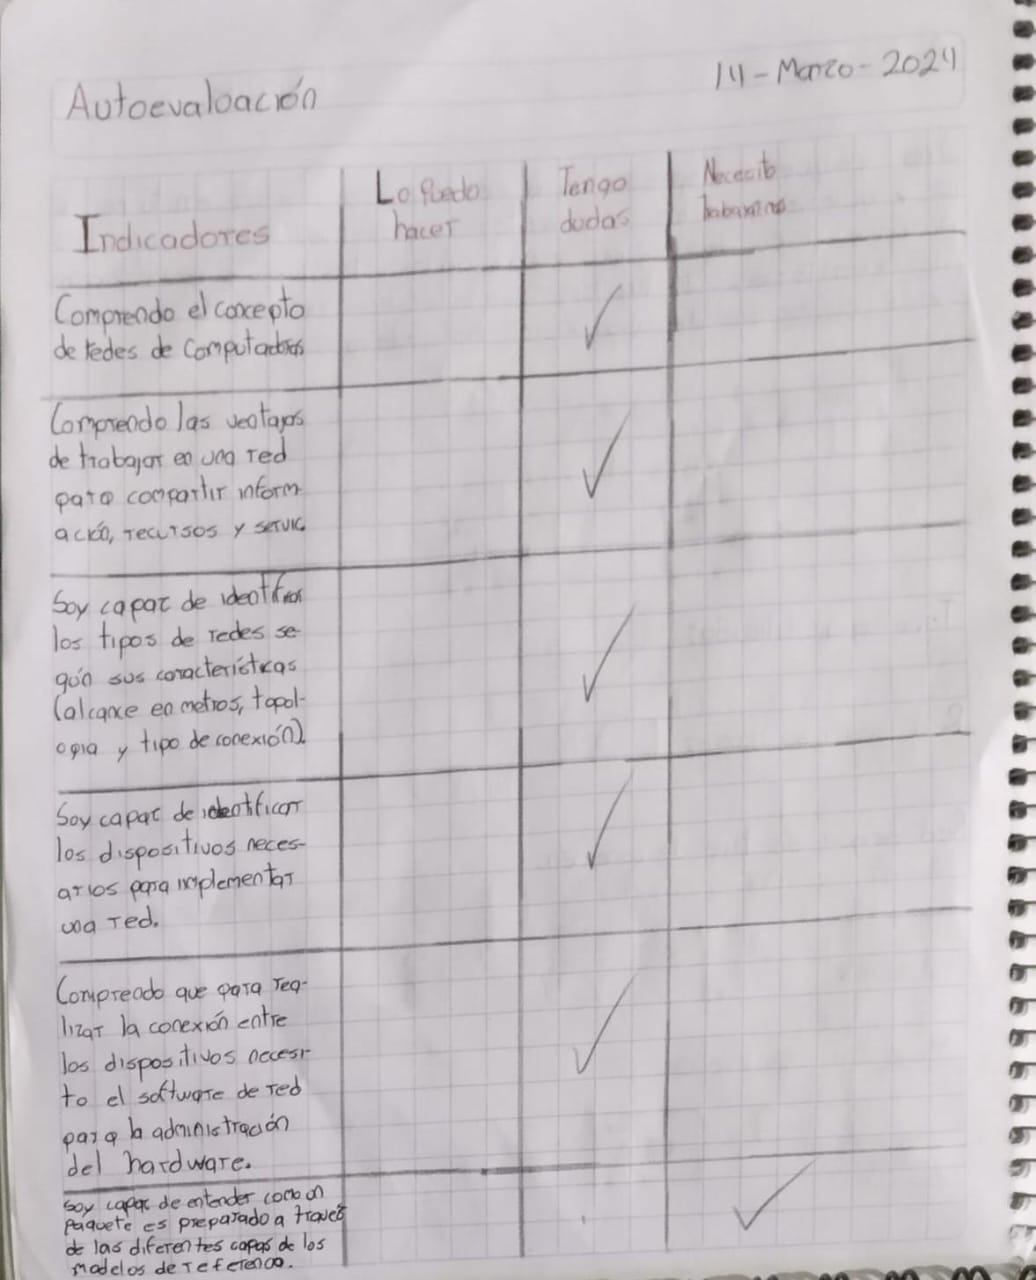 Autoevaluación
14-Marzo-2024
Indicadores
Lo Puedo
hacer
Tengo
dudas
Necesito
Comprendo el concepto
de redes de Computadoras
Comprendo las ventajas
de trabajar en una red
para compartir inform-
ación, recursos y servic.
Soy capaz de identificar
los tipos de redes se-
gún sus características
(alcance en metros, topol-
ogia y tipo de conexión).
Soy capaz de identificar
los dispositivos neces-
arios para implementar
una red.
Comprendo que para rea-
lizar la conexión entre
los dispositivos necesi-
to el software de red
para la administración
del hardware.
Soy capaz de entender como un
Paquete es preparado a través
de las diferentes capas de los
modelos de referencia.